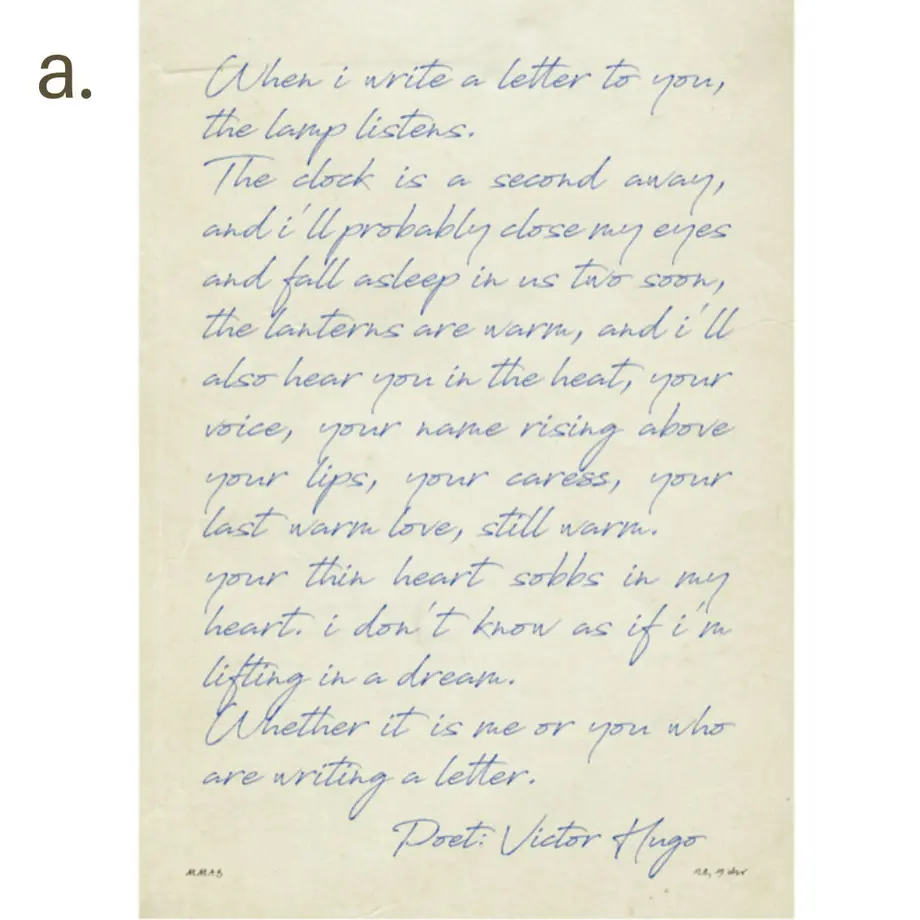 a.
When i write a letter to you,
the lamp listens.
The clock is a second away,
and i'll probably close my eyes
and fall asleep in us two soon,
the lanterns are warm, and i'll
also hear you in the heat, your
voice, your name rising above
your lips, your caress, your
last warm love, still warm.
your thin heart sobbs in my
heart. i don't know as if i'm
lifting in a dream.
Whether it is me or you who
are writing a letter.
Poet: Victor Hugo